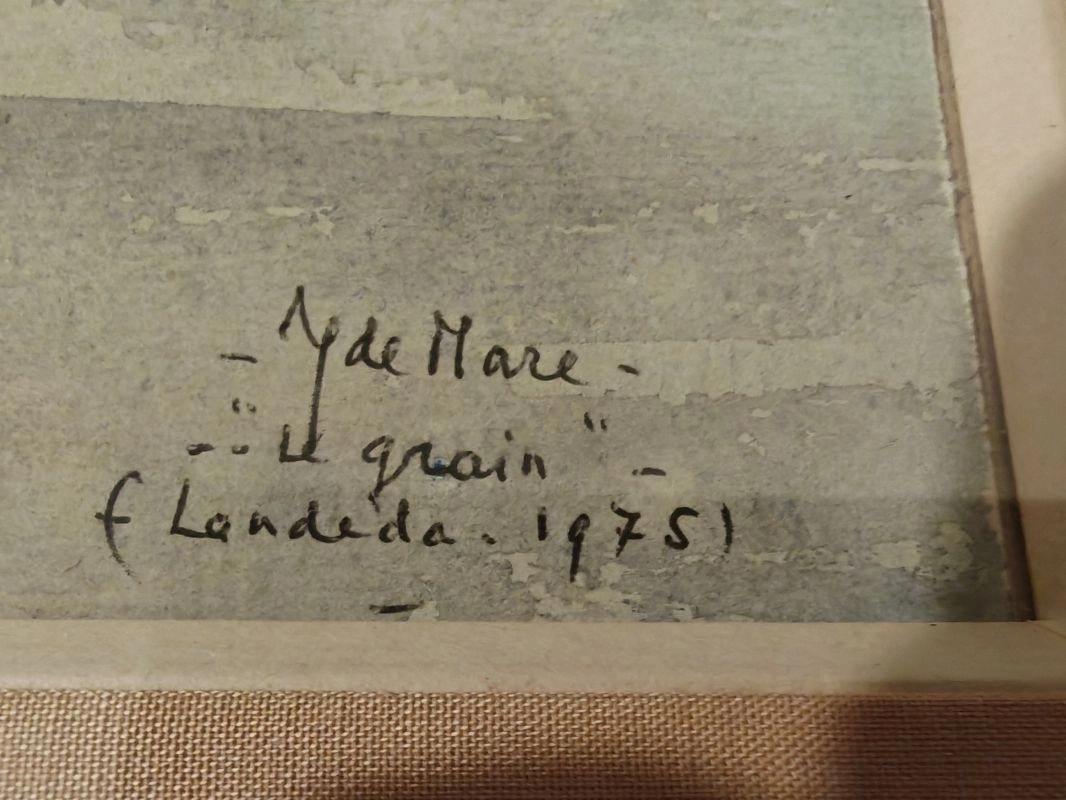 - Y de Mare -
- "Le grain" -
( Landéda. 1975)